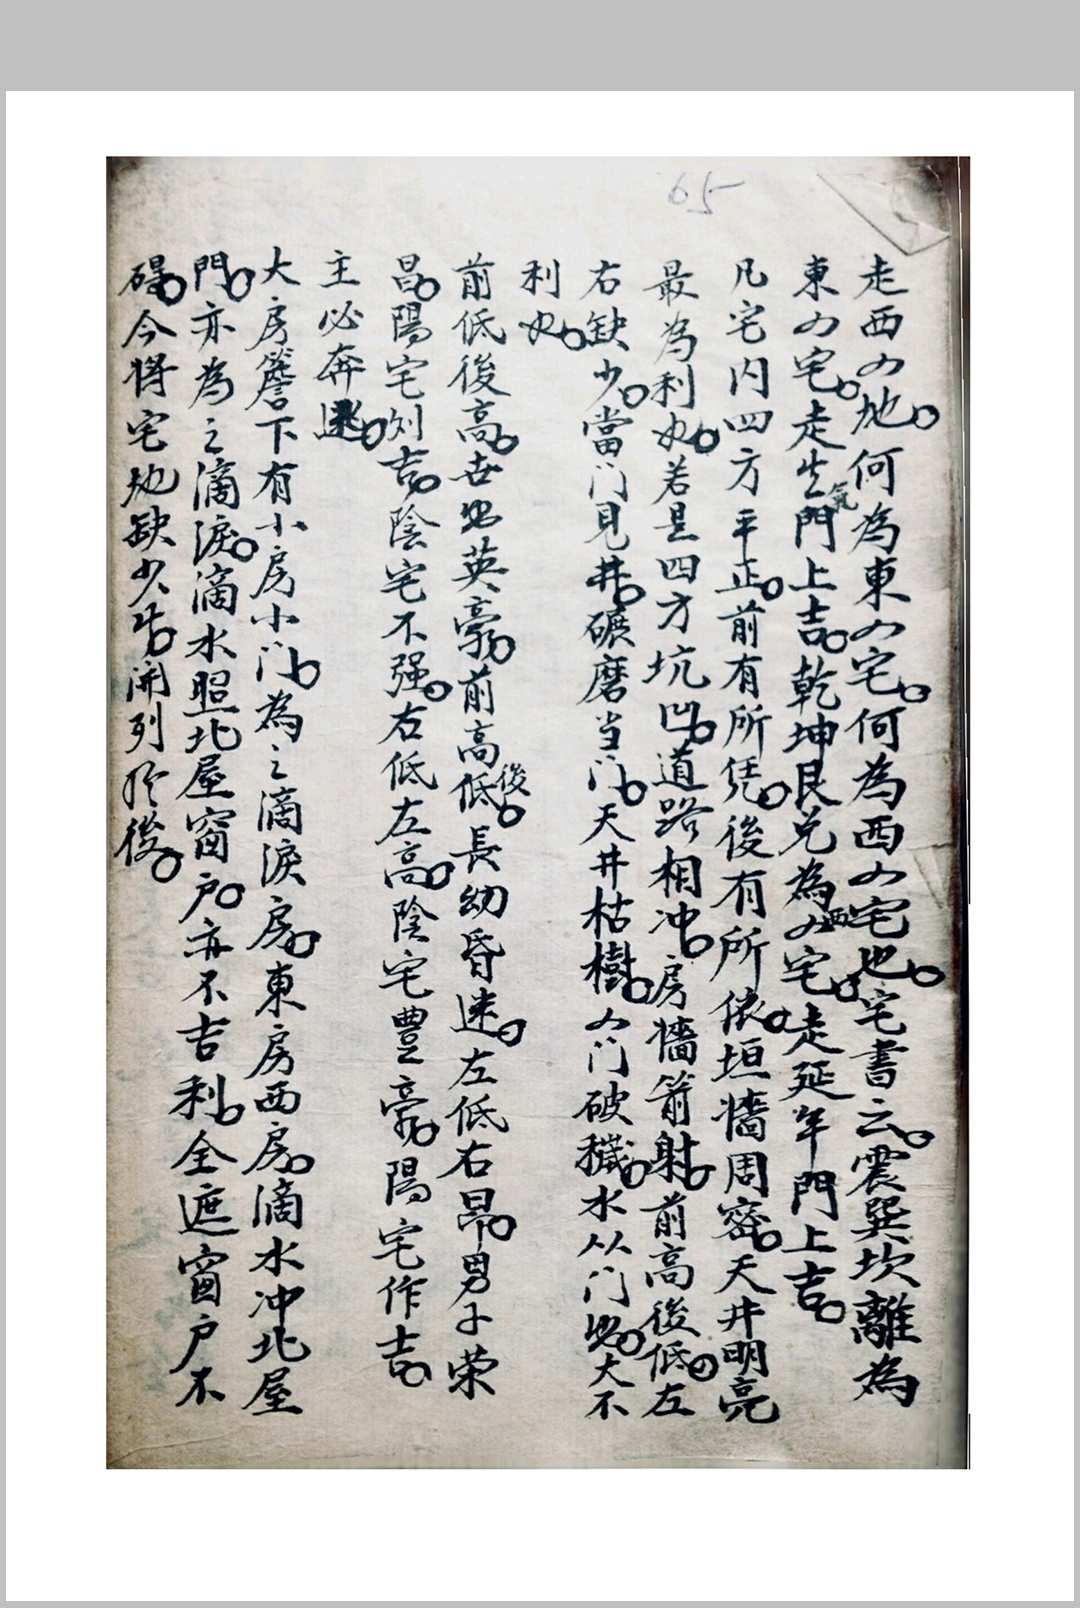 65
走西四地。何為東四宅。何為西四宅也。宅書云。震巽坎離為
東四宅。走生氣門上吉。乾坤艮兌為西四宅。走延年門上吉。
凡宅内四方平正。前有所凭。後有所依。垣墻周密。天井明亮
最為利也。若是四方坑凹。道路相冲。房墻箭射。前高後低。左
右缺少。當門見井。碾磨当门。天井枯樹。四门破穢。水从门出。大不
利也。
前低後高。世出英豪。前高後低。長幼昏迷。左低右昂。男子荣
昌。陽宅则吉。陰宅不强。右低左高。陰宅豊豪。陽宅作吉。
主必奔逃。
大房簷下有小房小门。為之滴淚房。東房西房。滴水冲北屋
門。亦為之滴淚。滴水照北屋窗户。亦不吉利。全遮窗户不
碍。今将宅地缺少生。開列於後。